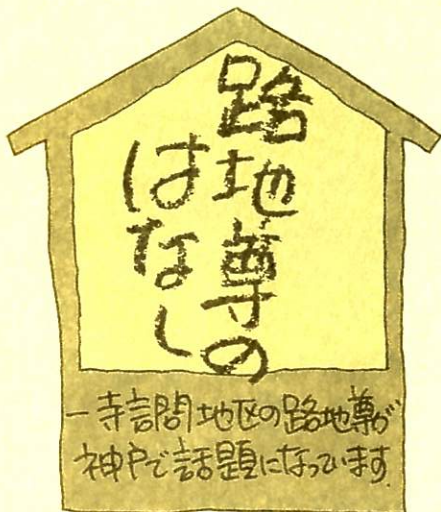 路地尊の
はなし
一寺言問地区の路地尊が
神戸で話題になっています。